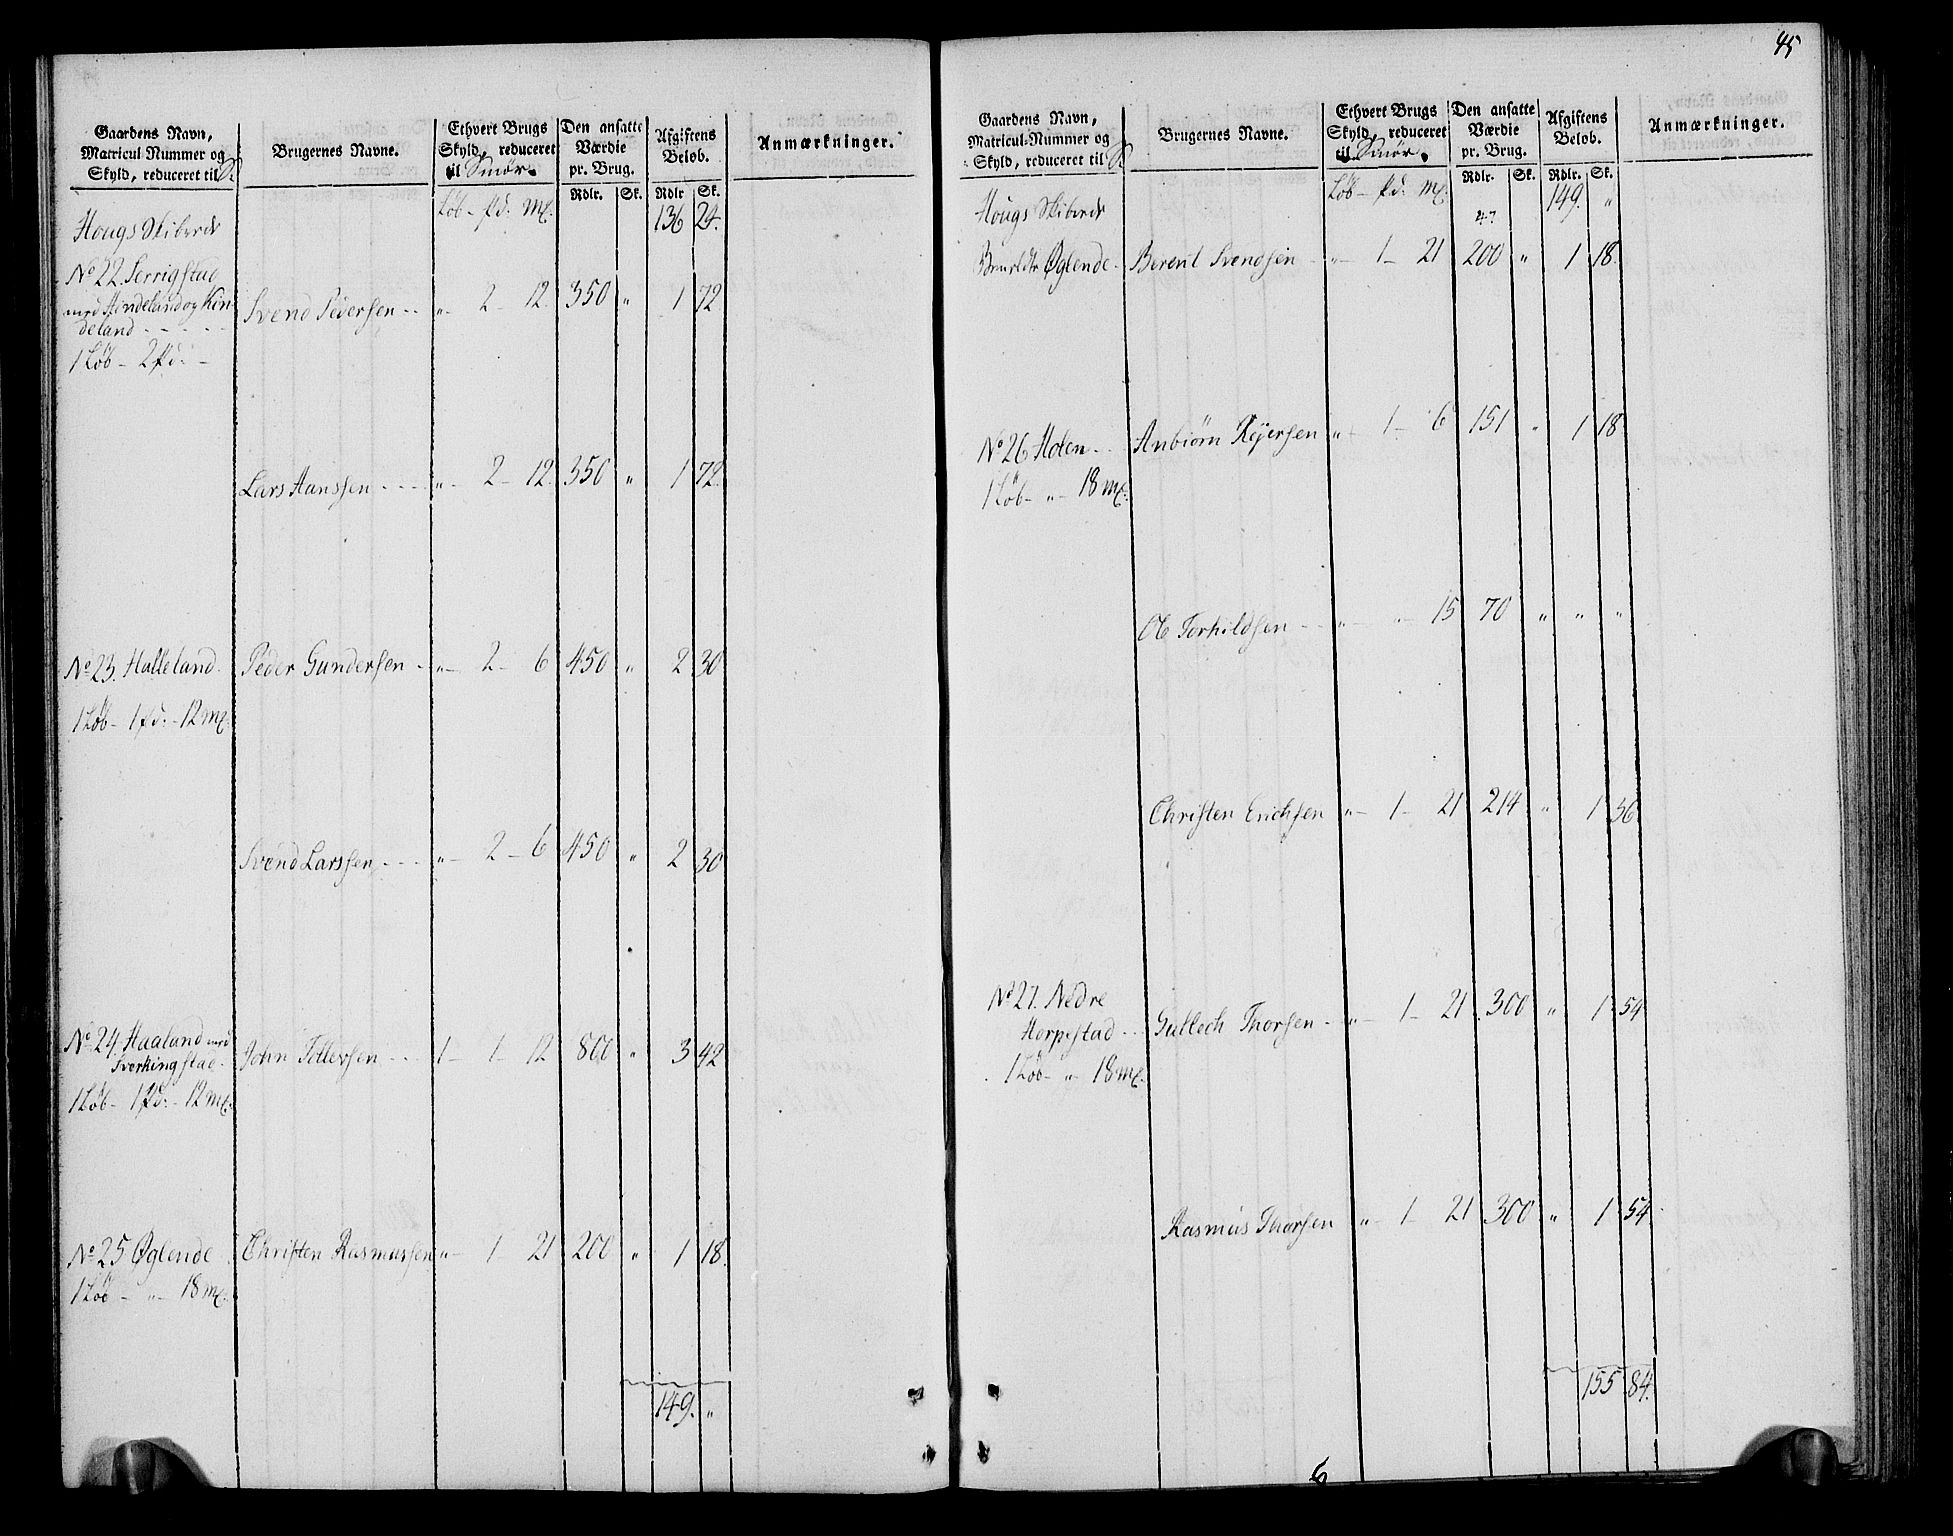 Gaardens Navn,
Matricul-Nummer og
Skyld, reduceret til S.
Brugernes Navne.
Ethvert Brugs
Skyld, reduceret
til Smør.
Den ansatte
Værdie
pr. Brug.
Afgiftens
Beløb.
Anmærkninger.
Rdlr. Sk. Rdlr Sk.
Løb - pd: mk.
Hougs Skibrede 136 24.
No 22. Serrigstad
deland
Svend Pedersen „ - 2 - 12 350 „ 1 72
1 Løb - 2 pd: -
Lars Hanssen „ - 2 - 12. 350 „ 1 72.
No 23. Halleland. Peder Gundersen „ - 2 - 6 450 „ 2 30
1 Løb - 1 pd: - 12 mk.
Svend Larssen „ - 2 - 6 450 „ 2 30
No 24. Haaland med John Tollersen 1 - 1 - 12 800 „ 3 42
Sverkingstad
1 Løb - 1 pd: - 12 mk.
No 25 Øglende Christen Rasmussen „ - 1 - 21 200 „ 1 18.
1 Løb - „ - 18 mk.
149. „
45
Gaardens Navn,
Matricul-Nummer og
Skyld, reduceret til S.
Brugernes Navne.
Ethvert Brugs
Skyld, reduceret
til Smør.
Den ansatte
Værdie
pr. Brug.
Afgiftens
Beløb.
Anmærkninger.
Rdlr. Sk. Rdlr. Sk.
Løb - pd: mk.
Hougs Skibrede 149. „
Øglende Berent Svendsen „ - 1 - 21 200 „ 1 18.
No 26 Holen Anbiørn Rejersen „ - 1 - 6 151 „ 1 18
1 Løb - „ - 18 mk.
Ole Torkildsen „ - „ - 15 70 „ „ „
Christen Erichsen „ - 1 - 21 214 „ 1 36
No 27. Nedre
Herpestad Gullech Thorsen „ - 1 - 21 300 „ 1 54
1 Løb - „ - 18 mk.
Rasmus Thorsen „ - 1 - 21 300 „ 1 54
155 84.
6